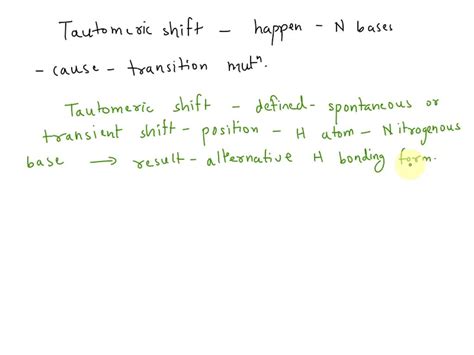 Tautomeric shift - happen - N bases
- cause - transition mutⁿ.
Tautomeric shift - defined - spontaneous or
transient shift - position - H atom - Nitrogenous
base → result - alternative H bonding form.